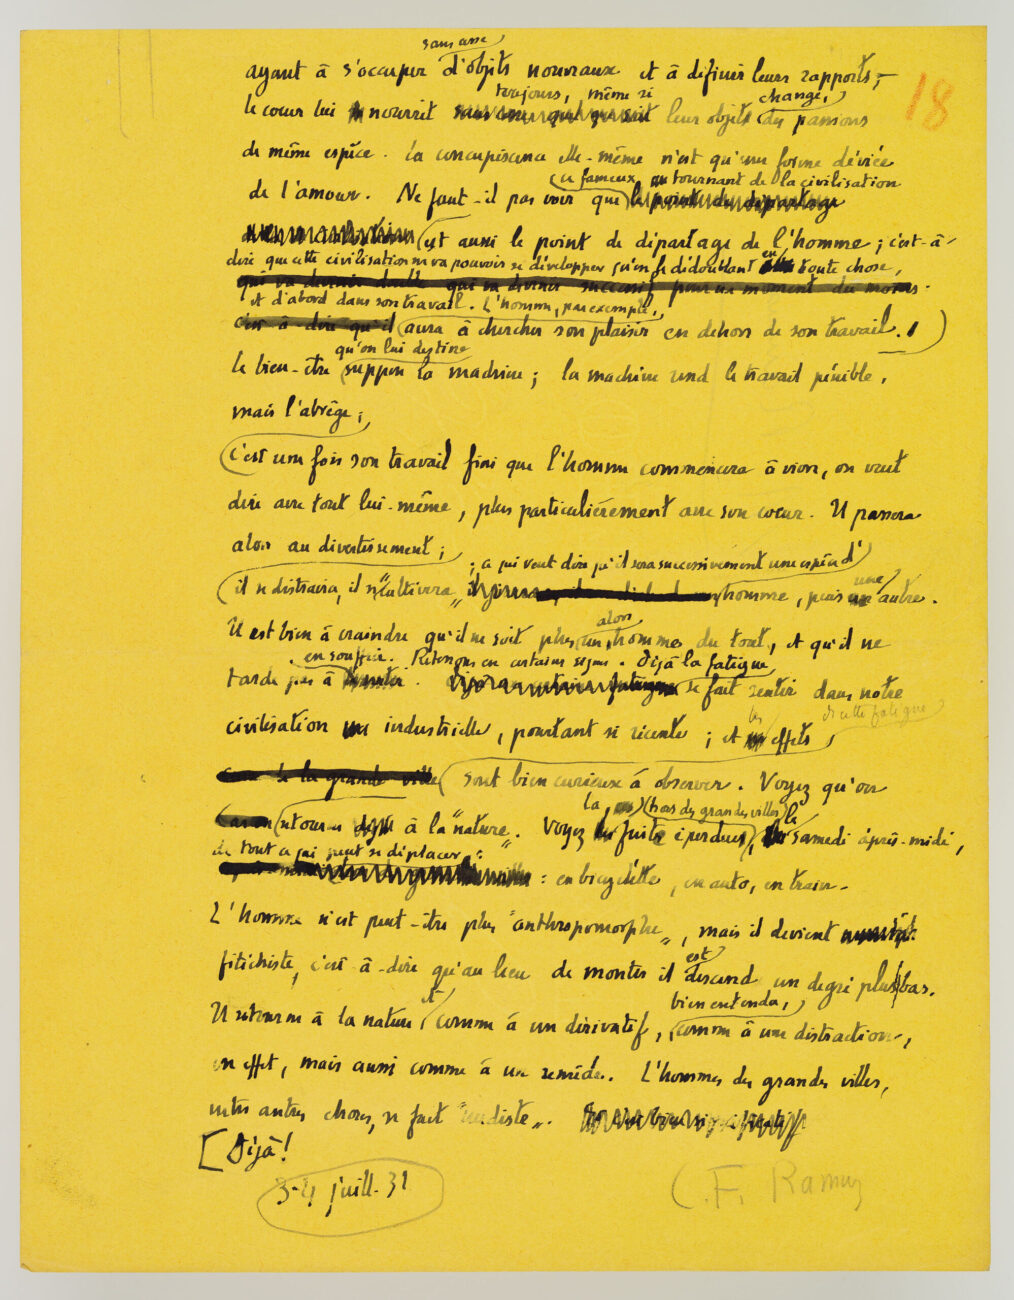 sans cesse
ayant à s'occuper d'objets nouveaux et à définir leurs rapports ;
18
toujours, même si change,
le cœur lui nourrit leur objet des passions
de même espèce. La concupiscence elle-même n'est qu'une forme déviée
ce fameux tournant de la civilisation
de l'amour. Ne faut-il pas voir que le point du départage
est aussi le point de départage de l'homme ; c'est-à-
dire que cette civilisation ne va pouvoir se développer qu'en dédoublant en toute chose,
qui va devenir double qui va devenir successif pour un moment du moins.
et d'abord dans son travail. L'homme, par exemple,
c'est-à-dire qu'il aura à chercher son plaisir en dehors de son travail.
qu'on lui destine
le bien-être suppose la machine ; la machine rend le travail pénible,
mais l'abrège ;
c'est une fois son travail fini que l'homme commencera à vivre, on veut
dire avec tout lui-même, plus particulièrement avec son cœur. Il passera
alors au divertissement ;
; ce qui veut dire qu'il sera successivement une espèce d'
il se distraira, il se "cultivera" homme, puis une autre.
alors
Il est bien à craindre qu'il ne soit plus un homme du tout, et qu'il ne
en souffrir. Retenons en certains signes. Déjà la fatigue
tarde pas à se fait sentir dans notre
les de cette fatigue
civilisation industrielle, pourtant si récente ; et effets
Ceux de la grande ville sont bien curieux à observer. Voyez qu'on
la (hors des grandes villes) le
retourne déjà à la "nature". Voyez fuite éperdue, samedi après-midi,
de tout ce qui peut se déplacer :
: en bicyclette, en auto, en train.
L'homme n'est peut-être plus "anthropomorphe", mais il devient
est
fétichiste, c'est-à-dire qu'au lieu de monter il descend un degré plus bas.
et bien entendu,
Il retourne à la nature comme à un dérivatif, comme à une distraction,
en effet, mais aussi comme à un remède. L'homme des grandes villes,
entre autres choses, se fait "nudiste".
[Déjà!
3-4 juill. 31
C. F. Ramuz